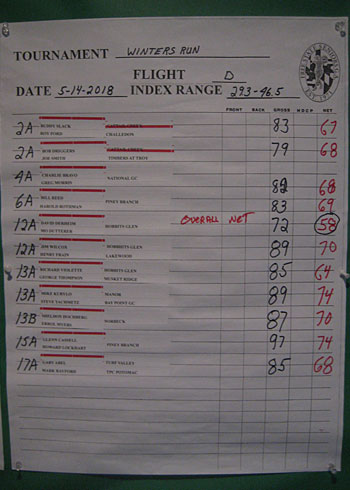 TOURNAMENT WINTERS RUN
FLIGHT D
DATE 5-14-2018 INDEX RANGE 293-46.5
FRONT BACK GROSS HDCP NET
2A 83 67
ROY FORD CHALLEDON
2A BOB DRIGGERS 79 68
JOE SMITH TIMBERS AT TROY
4A CHARLIE BRAVO NATIONAL GC
GREG MORRIS 82 68
6A BILL REED PINEY BRANCH 83 69
HAROLD ROTHMAN
12A HOBBITS GLEN OVERALL NET 72 58
12A JIM WILCOX HOBBITS GLEN 89 70
HENRY FRAIN LAKEWOOD
13A RICHARD VIOLETTE HOBBITS GLEN 85 64
GEORGE THOMPSON MUSKET RIDGE
13A MIKE KURYLO MANOR 89 74
BAY POINT GC
13B SHELDON HOCHBERG NORBECK 87 70
ERROL MYERS
15A GLENN CASSELL PINEY BRANCH 97 74
HOWARD LOCKHART
17A GARY ABEL TURF VALLEY 85 68
TPC POTOMAC